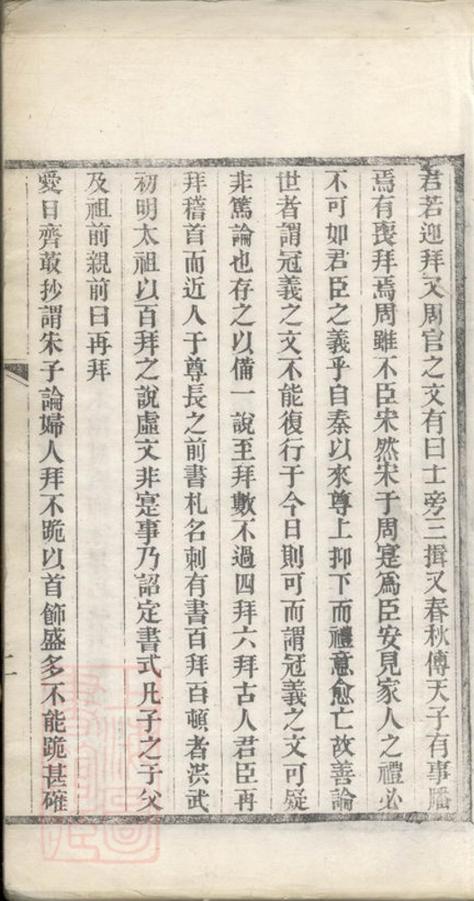 君若迎拜又周官之文有曰士旁三揖又春秋傳天子有事膰
焉有喪拜焉周雖不臣宋然宋于周寔爲臣安見家人之禮必
不可如君臣之義乎自秦以來尊上抑下而禮意愈亡故善論
世者謂冠義之文不能復行于今日則可而謂冠義之文可疑
非篤論也存之以備一說至拜數不過四拜六拜古人君臣再
拜稽首而近人于尊長之前書札名刺有書百拜百頓者洪武
初明太祖以百拜之說虛文非寔事乃詔定書式凡子之于父
及祖前親前曰再拜
愛日齊菆抄謂朱子論婦人拜不跪以首飾盛多不能跪甚確